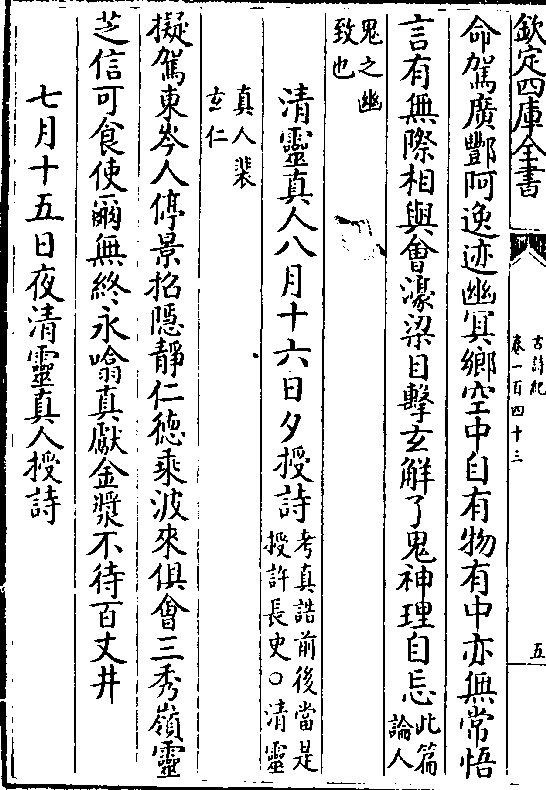 欽定四庫全書
古詩紀
卷一百四十三
五
命駕廣酆阿逸迹幽冥鄉空中自有物有中亦無常悟
言有無際相與會濠梁目擊玄解了鬼神理自忘此篇
論人
鬼之幽
致也
清靈真人八月十六日夕授詩考真誥前後當是
授許長史○清靈
真人裴
玄仁
擬駕東岑人停景招隱靜仁德乘波來俱會三秀嶺靈
芝信可食使爾無終永噏真獻金漿不待百丈井
七月十五日夜清靈真人授詩